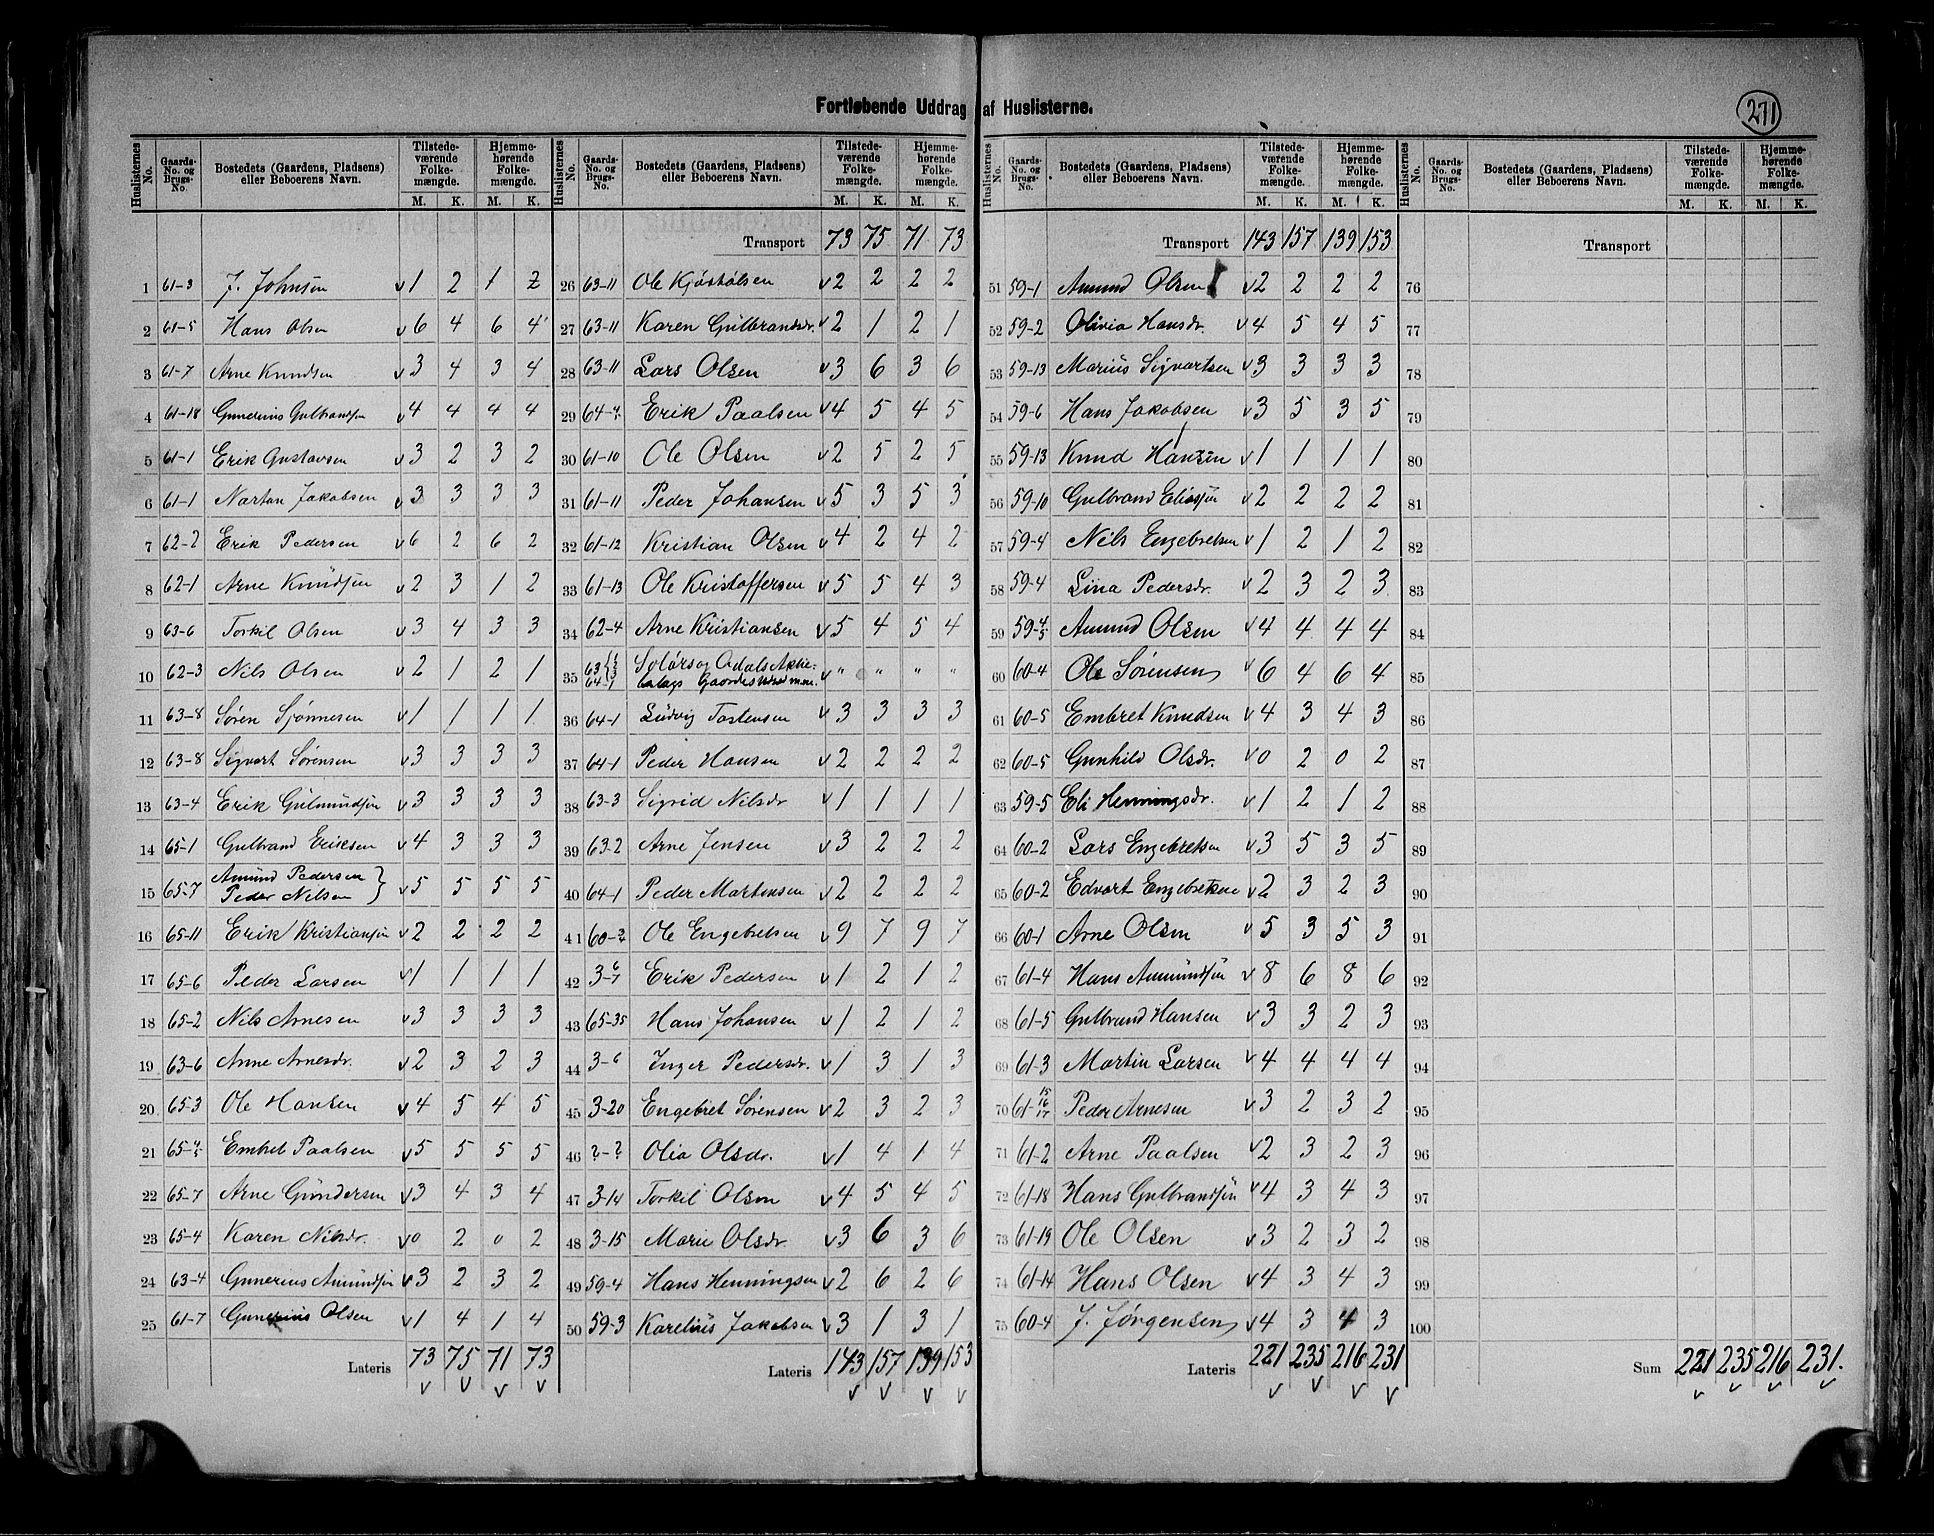 Fortløbende Uddrag af Huslisterne.
271
Huslisternes No. Gaards-No. og Brugs-No. Bostedets (Gaardens, Pladsens) eller Beboerens Navn. Tilstedeværende Folkemængde. M. K. Hjemmehørende Folkemængde. M. K.
1 61-3 J. Johnsen v 1 2 1 2
2 61-5 Hans Olsen v 6 4 6 4
3 61-7 Arne Knudsen v 3 4 3 4
4 61-18 Gunerius Gulbrandsen v 4 4 4 4
5 61-1 Erik Gustavsen v 3 2 3 2
6 61-1 Nartan Jakobsen v 3 3 3 3
7 62-2 Erik Pedersen v 6 2 6 2
8 62-1 Arne Knudsen v 2 3 1 2
9 63-6 Torkil Olsen v 3 4 3 3
10 62-3 Nils Olsen v 2 1 2 1
11 63-8 Søren Sjønnesen v 1 1 1 1
12 63-8 Sigvart Sørensen v 3 3 3 3
13 63-4 Erik Gulmundsen v 3 3 3 3
14 65-1 Gulbrand Eriksen v 4 3 3 3
15 65-7 Amund Pedersen
Peder Nilsen } v 5 5 5 5
16 65-11 Erik Kristiansen v 2 2 2 2
17 65-6 Peder Larsen v 1 1 1 1
18 65-2 Nils Arnesen v 3 3 3 3
19 63-6 Anne Arnesdr. v 2 3 2 3
20 65-3 Ole Hansen v 4 5 4 5
21 65-4/5 Embret Paalsen v 5 5 5 5
22 65-7 Arne Gundersen v 3 4 3 4
23 65-4 Karen Nilsdr. v 0 2 0 2
24 63-4 Gunerius Amundsen v 3 2 3 2
25 61-7 Gunerius Olsen v 1 4 1 4
Lateris 73 75 71 73
v v v v
Huslisternes No. Gaards-No. og Brugs-No. Bostedets (Gaardens, Pladsens) eller Beboerens Navn. Tilstedeværende Folkemængde. M. K. Hjemmehørende Folkemængde. M. K.
Transport 73 75 71 73
26 63-11 Ole Kjøstølsen v 2 2 2 2
27 63-11 Karen Gulbrandsdr. v 2 1 2 1
28 63-11 Lars Olsen v 3 6 3 6
29 64-2 Erik Paalsen v 4 5 4 5
30 61-10 Ole Olsen v 2 5 2 5
31 61-11 Peder Johansen v 5 3 5 3
32 61-12 Kristian Olsen v 4 2 4 2
33 61-13 Ole Kristoffersen v 5 5 4 3
34 62-4 Arne Kristiansen v 5 4 5 4
35 63 64-1 Solørs og Odals Aktie-
v " " " "
36 64-1 Ludvig Tostensen v 3 3 3 3
37 64-1 Peder Hansen v 2 2 2 2
38 63-3 Sigrid Nilsdr v 1 1 1 1
39 63-2 Arne Jensen v 3 2 2 2
40 64-1 Peder Martinsen v 2 2 2 2
41 60-3/4 Ole Engebretsen v 9 7 9 7
42 3-6/7 Erik Pedersen v 1 2 1 2
43 65-35 Hans Johansen v 1 2 1 2
44 3-6 Inger Pedersdr. v 1 3 1 3
45 3-20 Engebret Sørensen v 2 3 2 3
46 ?-? Olia Olsdr. v 1 4 1 4
47 3-14 Torkil Olsen v 4 5 4 5
48 3-15 Marie Olsdr. v 3 6 3 6
49 59-4 Hans Henningsen v 2 6 2 6
50 59-3 Karelius Jakobsen v 3 1 3 1
Lateris 143 157 139 153
v v v v
Huslisternes No. Gaards-No. og Brugs-No. Bostedets (Gaardens, Pladsens) eller Beboerens Navn. Tilstedeværende Folkemængde. M. K. Hjemmehørende Folkemængde. M. K.
Transport 143 157 139 153
51 59-1 Amund Olsen v 2 2 2 2
52 59-2 Olivia Hansdr. v 4 5 4 5
53 59-13 Marius Sigvartsen v 3 3 3 3
54 59-6 Hans Jakobsen v 3 5 3 5
55 59-13 Knud Hansen v 1 1 1 1
56 59-10 Gulbrand Eliasen v 2 2 2 2
57 59-4 Nils Engebretsen v 1 2 1 2
58 59-4 Lina Pedersdr. v 2 3 2 3
59 59-4/5 Amund Olsen v 4 4 4 4
60 60-4 Ole Sørensen v 6 4 6 4
61 60-5 Embret Knudsen v 4 3 4 3
62 60-5 Gunhild Olsdr. v 0 2 0 2
63 59-5 Eli Henningsdr. v 1 2 1 2
64 60-2 Lars Engebretsen v 3 5 3 5
65 60-2 Edvart Engebretsen v 2 3 2 3
66 60-1 Arne Olsen v 5 3 5 3
67 61-4 Hans Amundsen v 8 6 8 6
68 61-5 Gulbrand Hansen v 3 3 2 3
69 61-3 Martin Larsen v 4 4 4 4
70 61-15 16 17 Peder Arnesen v 3 2 3 2
71 61-2 Arne Paalsen v 2 3 2 3
72 61-18 Hans Gulbrandsen v 4 3 4 3
73 61-19 Ole Olsen v 3 2 3 2
74 61-14 Hans Olsen v 4 3 4 3
75 60-4 J. Jørgensen v 4 3 4 3
Lateris 221 235 216 231
v v v v
Huslisternes No. Gaards-No. og Brugs-No. Bostedets (Gaardens, Pladsens) eller Beboerens Navn. Tilstedeværende Folkemængde. M. K. Hjemmehørende Folkemængde. M. K.
Transport
76
77
78
79
80
81
82
83
84
85
86
87
88
89
90
91
92
93
94
95
96
97
98
99
100
Sum 221 235 216 231.
v v v v